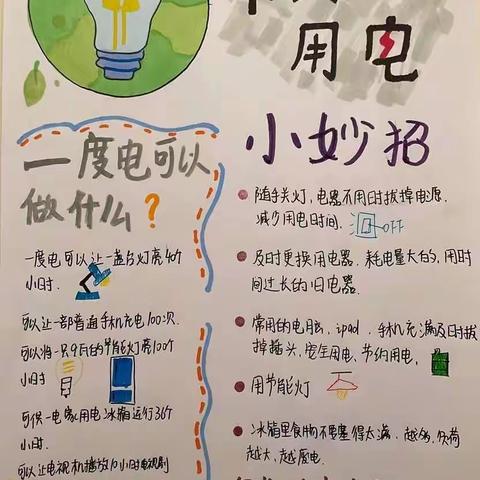 用电
小妙招
一度电可以
做什么？
一度电可以让一盏台灯亮40个
小时.
可以让一部普通手机充电100次.
可以将一只9瓦的节能灯亮100个
小时
可供一电家用电冰箱运行36个
小时.
可以让电视机播放10小时电视剧
随手关灯,电器不用时拔掉电源,
减少用电时间. OFF
及时更换用电器.耗电量大的,用时
间过长的旧电器.
常用的电脑, ipad . 手机充满及时拔
掉插头,安全用电、节约用电.
用节能灯
冰箱里食物不要塞得太满, 越多,负荷
越大,越废电.